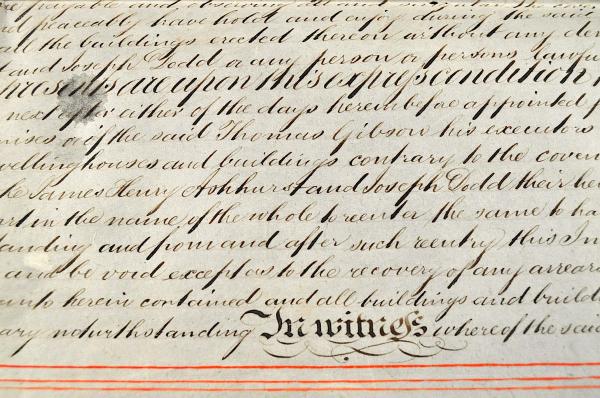 payable and observing
peaceably have hold and enjoy during the said
all the buildings erected thereon without any
and Joseph Dodd or any person or persons lawfu
presents are upon this express condition
next after either of the days hereinbefore appointed
mises or if the said Thomas Gibson his executors
welling houses and buildings contrary to the coven
James Henry Ashhurst and Joseph Dodd their he
art in the name of the whole to reenter the same to ha
anding and from and after such reentry this In
and be void except as to the recovery of any arrears
herein contained and all buildings and build
ary notwithstanding In witness whereof the said